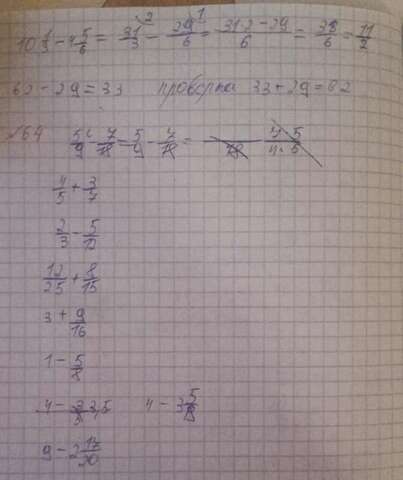 10 1/3 - 4 5/6 = 31/3 - 29/6 = 31·2-29/6 = 33/6 = 11/2
62 - 29 = 33 проверка 33 + 29 = 62
164
5/9 - 7/18 = 5/9 - 7/18 =
4/5 + 3/7
2/3 - 5/12
12/25 + 8/15
3 + 9/16
1 - 5/8
9 - 2 17/20